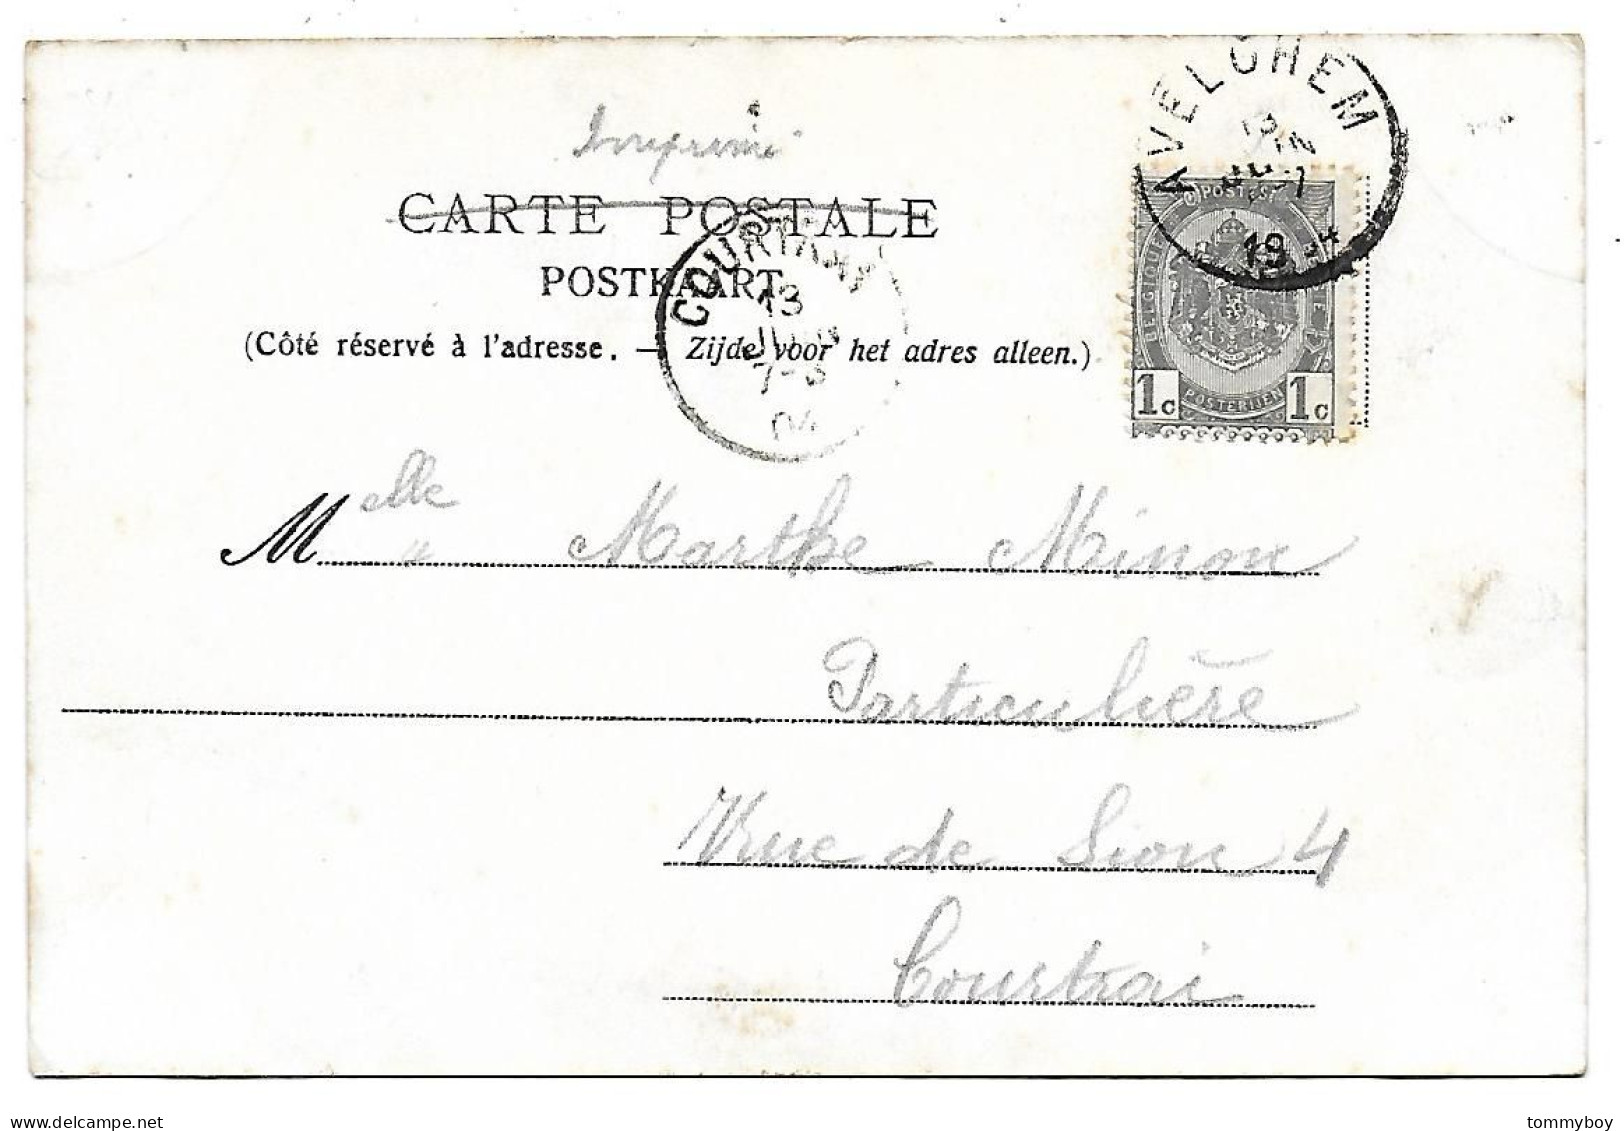 Imprimé
CARTE POSTALE
POSTKAART
(Côté réservé à l'adresse. — Zijde voor het adres alleen.)
AVELGHEM
JUIN
19
COURTRAI
13
JUIN
7-S
04
POSTES
BELGIQUE
1c POSTERIJEN 1c
Melle Marthe Minon
Particulière
Rue de Sion 4
Courtrai
delcampe.net
tommyboy